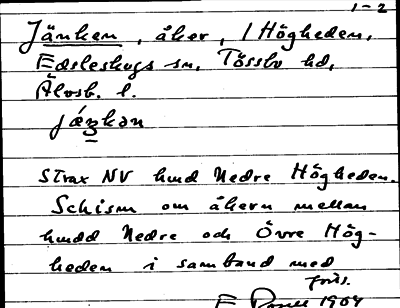 1-2
Jänken, åker, 1 Högheden,
Edsleskogs sn, Tössbo hd,
Älvsb. l.
jáŋkən
Strax NV hmd Nedre Högheden.
Schism om åkern mellan
hmdd Nedre och Övre Hög-
heden i samband med
E 1904